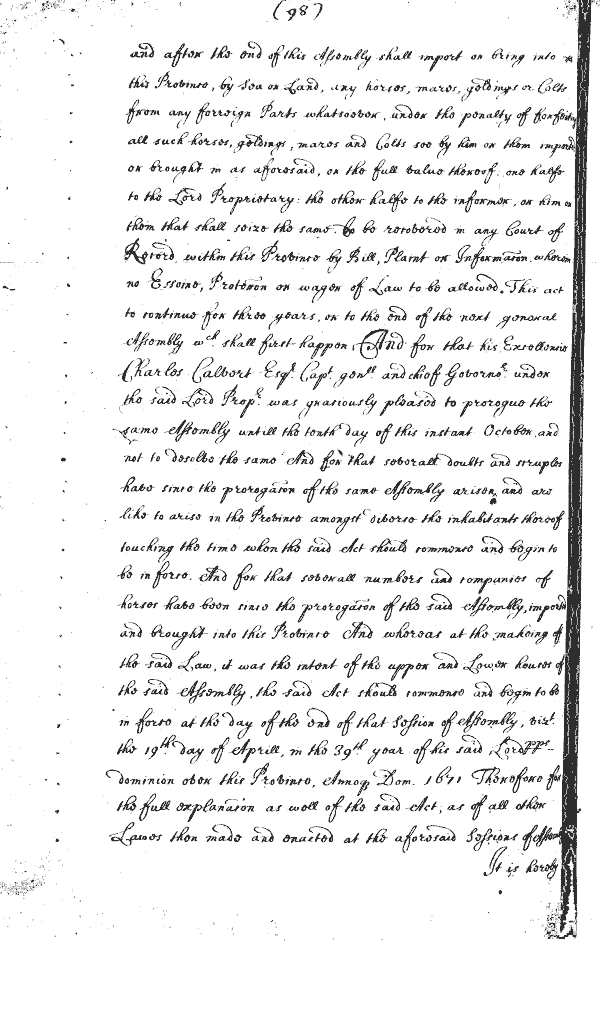 (98)
and after the end of this Assembly shall import or bring into
this Province, by Sea or Land, any horses, mares, geldings or Colts
from any forreign Parts whatsoever, under the penalty of forfeiting
all such horses, geldings, mares and Colts soe by him or them imported
or brought in as aforesaid, or the full value thereof: one halfe
to the Lord Proprietary: the other halfe to the informer, or him or
them that shall seize the same. To be recovered in any Court of
Record, within this Province by Bill, Plaint or Informacon, wherein
no Essoine, Proteccon or wager of Law to be allowed. This act
to continue for three years, or to the end of the next general
Assembly wch. shall first happen. And for that his Excellencie
Charles Calvert Esqr. Capt. genll. and chief Governor. under
the said Lord Propr. was graciously pleased to prorogue the
same Assembly untill the tenth day of this instant October, and
not to desolve the same And for that severall doubts and scruples
have since the prorogacon of the same Assembly arisen, and are
like to arise in the Province amongst diverse the inhabitants thereof
touching the time when the said Act should commence and begin to
be in force. And for that severall numbers and companies of
horses have been since the prorogacon of the said Assembly, imported
and brought into this Province And whereas at the makeing of
the said Law, it was the intent of the upper and Lower houses of
the said Assembly, the said Act should commence and begin to be
in force at the day of the end of that Session of Assembly, vizt.
the 19th day of Aprill, in the 39th year of his said Lordpps
dominion over this Province, Annoq Dom. 1671 Therefore for
the full explanacon as well of the said Act, as of all other
Lawes then made and enacted at the aforesaid Sessions of Assembly
It is hereby